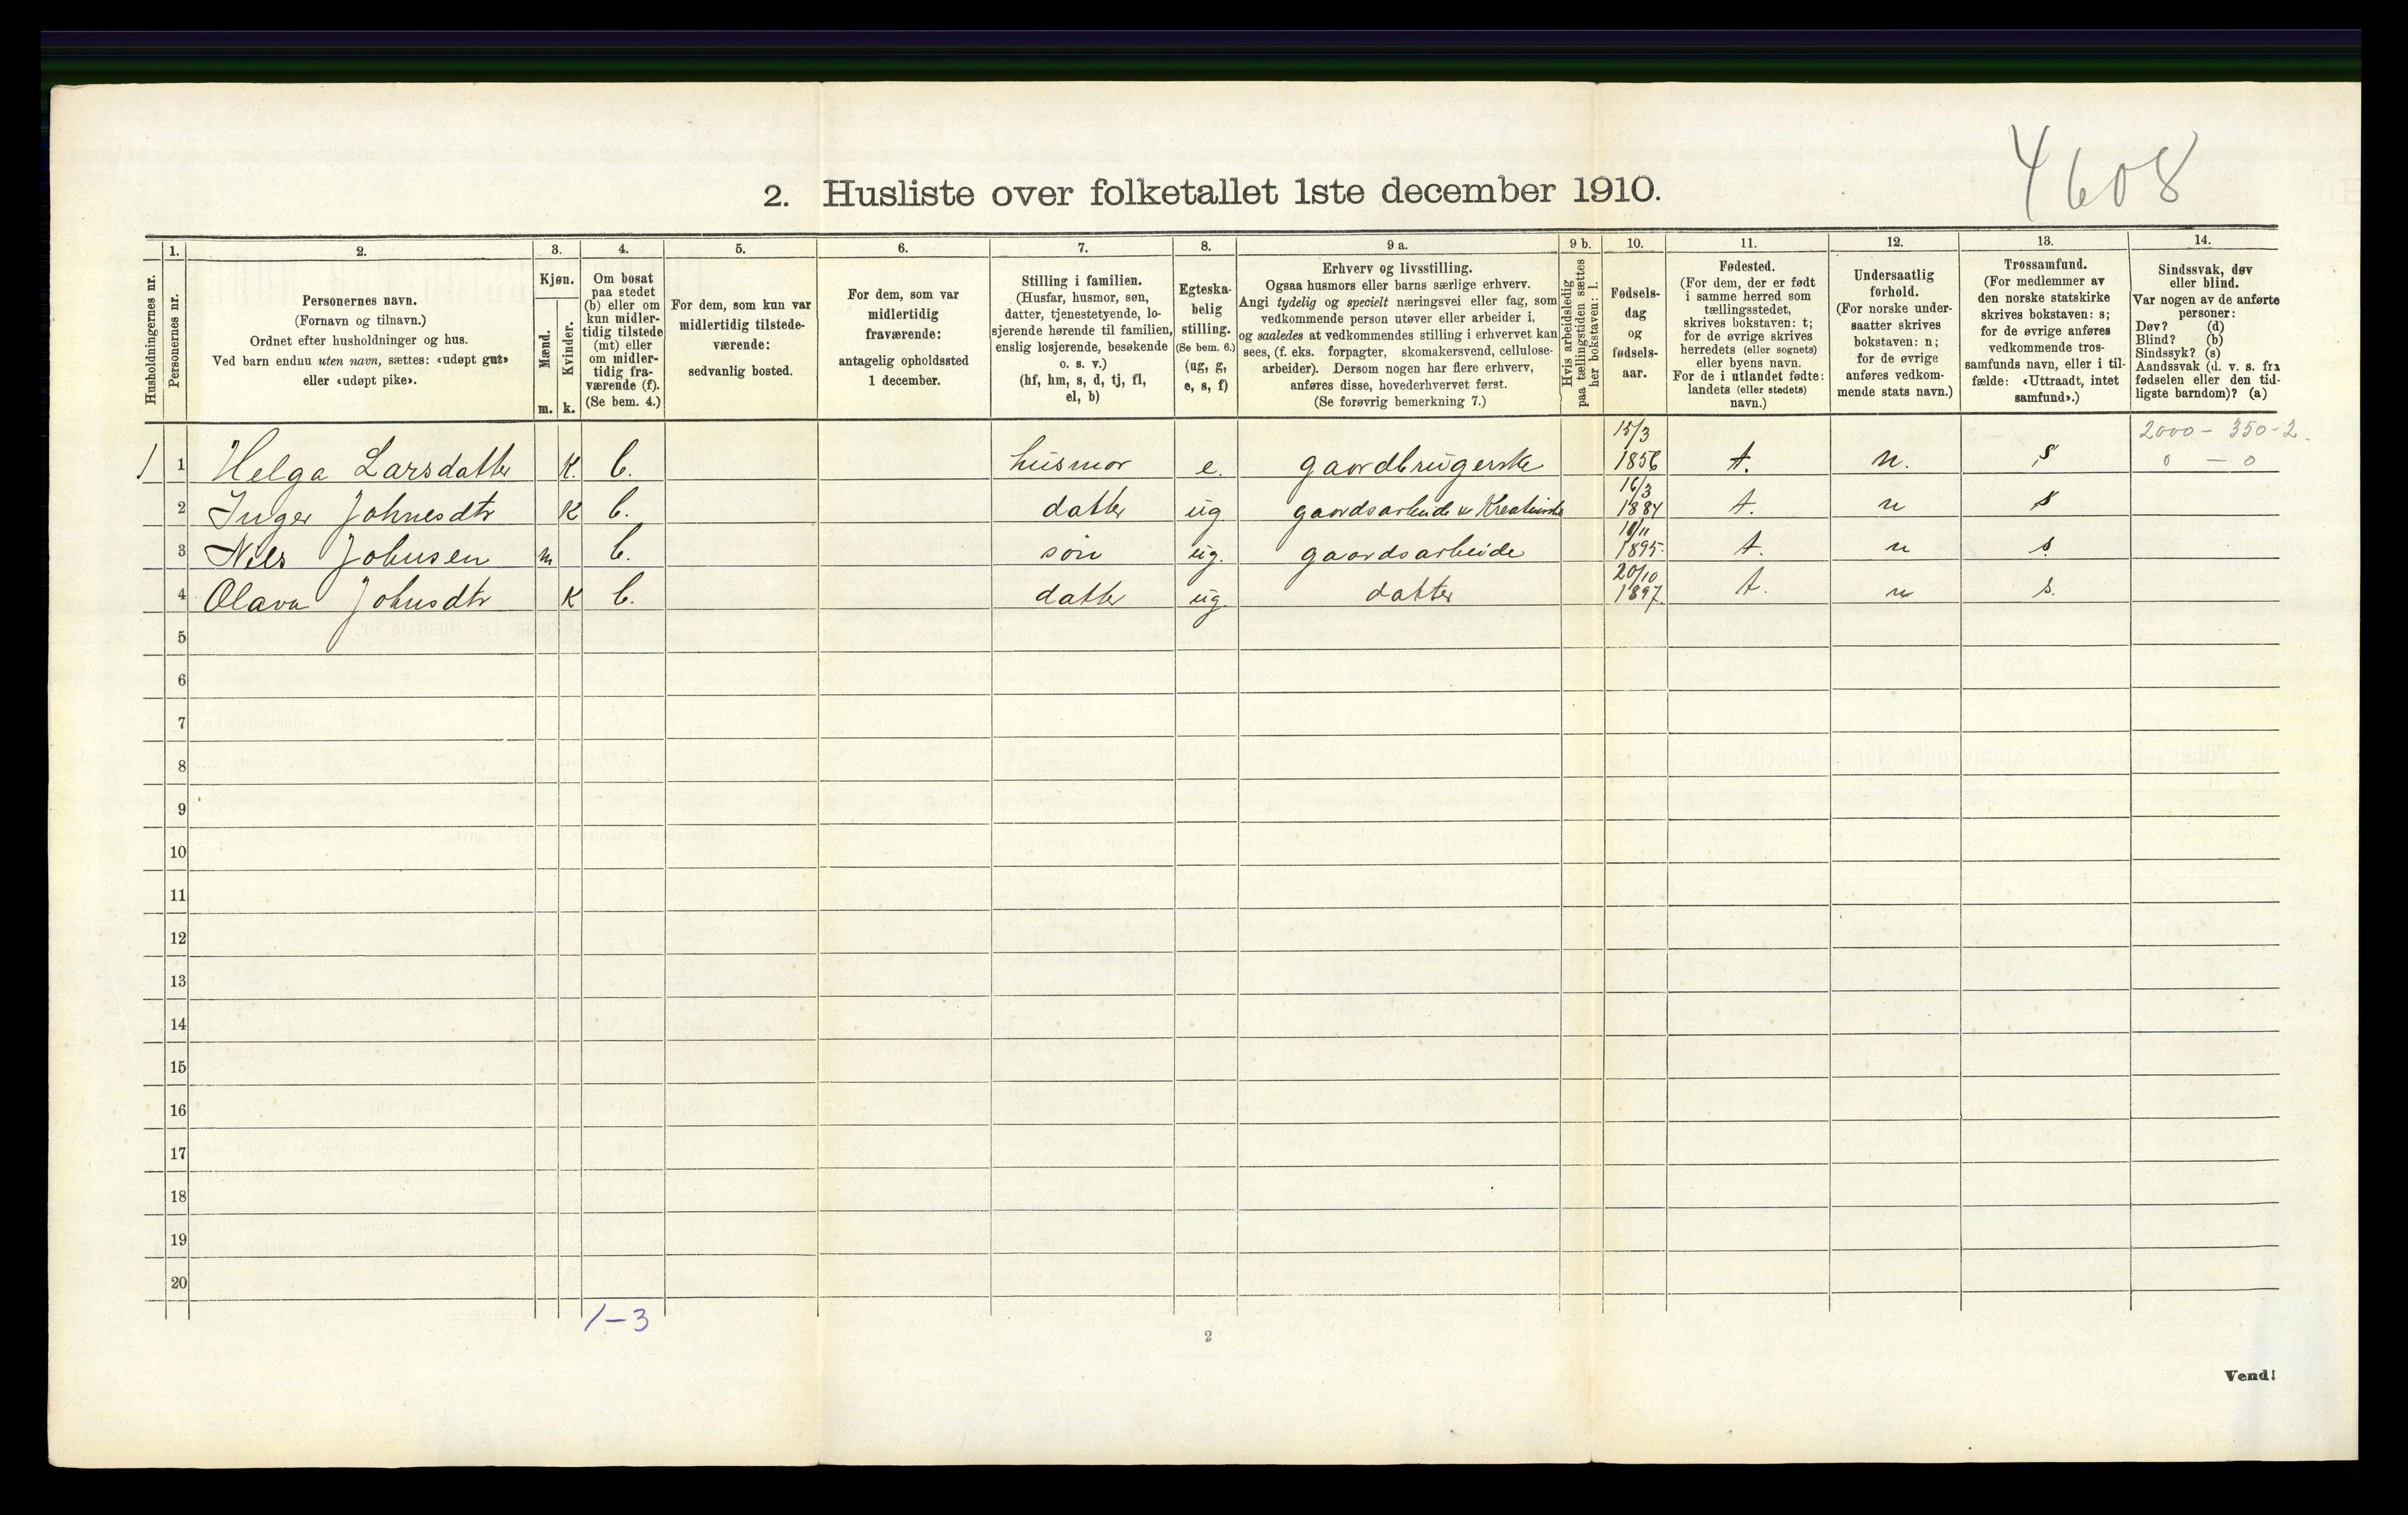 4608
2. Husliste over folketallet 1ste december 1910.
Husholdningernes nr.
1.
Personernes nr.
2.
Personernes navn.
(Fornavn og tilnavn.)
Ordnet efter husholdninger og hus.
Ved barn endnu uten navn, sættes: «udøpt gut»
eller «udøpt pike».
3.
Kjøn.
Mænd.
Kvinder.
m. k.
4.
Om bosat
paa stedet
(b) eller om
kun midler-
tidig tilstede
(mt) eller
om midler-
tidig fra-
værende (f).
(Se bem. 4.)
5.
For dem, som kun var
midlertidig tilstede-
værende:
sedvanlig bosted.
6.
For dem, som var
midlertidig
fraværende:
antagelig opholdssted
1 december.
7.
Stilling i familien.
(Husfar, husmor, søn,
datter, tjenestetyende, lo-
sjerende hørende til familien,
enslig losjerende, besøkende
o. s. v.)
(hf, hm, s, d, tj, fl,
el, b)
8.
Egteska-
belig
stilling.
(Se bem. 6.)
(ug, g,
e, s, f)
9 a.
Erhverv og livsstilling.
Ogsaa husmors eller barns særlige erhverv.
Angi tydelig og specielt næringsvei eller fag, som
vedkommende person utøver eller arbeider i,
og saaledes at vedkommendes stilling i erhvervet kan
sees, (f. eks. forpagter, skomakersvend, cellulose-
arbeider). Dersom nogen har flere erhverv,
anføres disse, hovederhvervet først.
(Se forøvrig bemerkning 7.)
9 b.
Hvis arbeidsledig
paa tællingstiden sættes
her bokstaven: l.
10.
Fødsels-
dag
og
fødsels-
aar.
11.
Fødested.
(For dem, der er født
i samme herred som
tællingsstedet,
skrives bokstaven: t;
for de øvrige skrives
herredets (eller sognets)
eller byens navn.
For de i utlandet fødte:
landets (eller stedets)
navn.)
12.
Undersaatlig
forhold.
(For norske under-
saatter skrives
bokstaven: n;
for de øvrige
anføres vedkom-
mende stats navn.)
13.
Trossamfund.
(For medlemmer av
den norske statskirke
skrives bokstaven: s;
for de øvrige anføres
vedkommende tros-
samfunds navn, eller i til-
fælde: «Uttraadt, intet
samfund».)
14.
Sindssvak, døv
eller blind.
Var nogen av de anførte
personer:
Døv? (d)
Blind? (b)
Sindssyk? (s)
Aandssvak (d. v. s. fra
fødselen eller den tid-
ligste barndom)? (a)
15/3 2000 - 350-2.
1 1 Helga Larsdatter K. b. husmor e. gaardbrugerske 1856 t. n. s 0 - 0
16/3
2 Inger Johnesdtr K b. datter ug gaardsarbeide & 1884 t. n s
18/11
3 Nils Johnsen m b. søn ug. gaardsarbeide 1895. t. n s.
20/10
4 Olava Johnsdtr K b. datter ug. datter 1897. t. n s.
5
6
7
8
9
10
11
12
13
14
15
16
17
18
19
20
1-3
2
Vend!